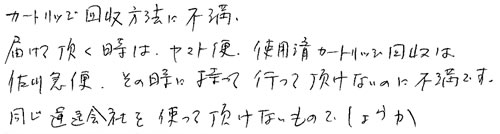 カートリッジ回収方法に不満.
届けて頂く時は. ヤマト便. 使用済カートリッジ回収は
佐川急便. その時に持って行って頂けないのに不満です.
同じ運送会社を使って頂けないものでしょうか